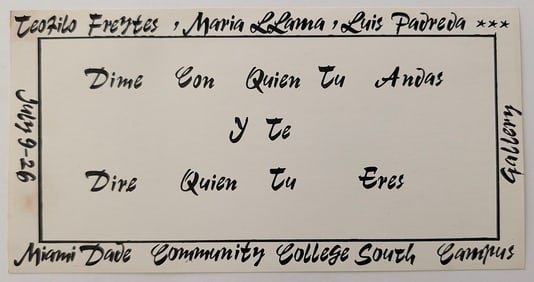 Teofilo Freytes, Maria LLama, Luis Padreda ***
July 9-26
Dime Con Quien Tu Andas
Y Te
Dire Quien Tu Eres
Gallery
Miami Dade Community College South Campus